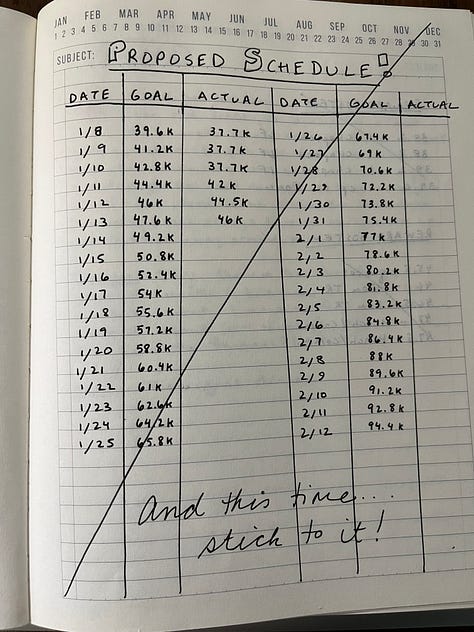 JAN FEB MAR APR MAY JUN JUL AUG SEP OCT NOV DEC
1 2 3 4 5 6 7 8 9 10 11 12 13 14 15 16 17 18 19 20 21 22 23 24 25 26 27 28 29 30 31
SUBJECT: PROPOSED SCHEDULE!
DATE GOAL ACTUAL DATE GOAL ACTUAL
1/8 39.6K 37.7K 1/26 67.4K
1/9 41.2K 37.7K 1/27 69K
1/10 42.8K 37.7K 1/28 70.6K
1/11 44.4K 42K 1/29 72.2K
1/12 46K 44.5K 1/30 73.8K
1/13 47.6K 46K 1/31 75.4K
1/14 49.2K 2/1 77K
1/15 50.8K 2/2 78.6K
1/16 52.4K 2/3 80.2K
1/17 54K 2/4 81.8K
1/18 55.6K 2/5 83.2K
1/19 57.2K 2/6 84.8K
1/20 58.8K 2/7 86.4K
1/21 60.4K 2/8 88K
1/22 61K 2/9 89.6K
1/23 62.6K 2/10 91.2K
1/24 64.2K 2/11 92.8K
1/25 65.8K 2/12 94.4K
And this time....
stick to it!